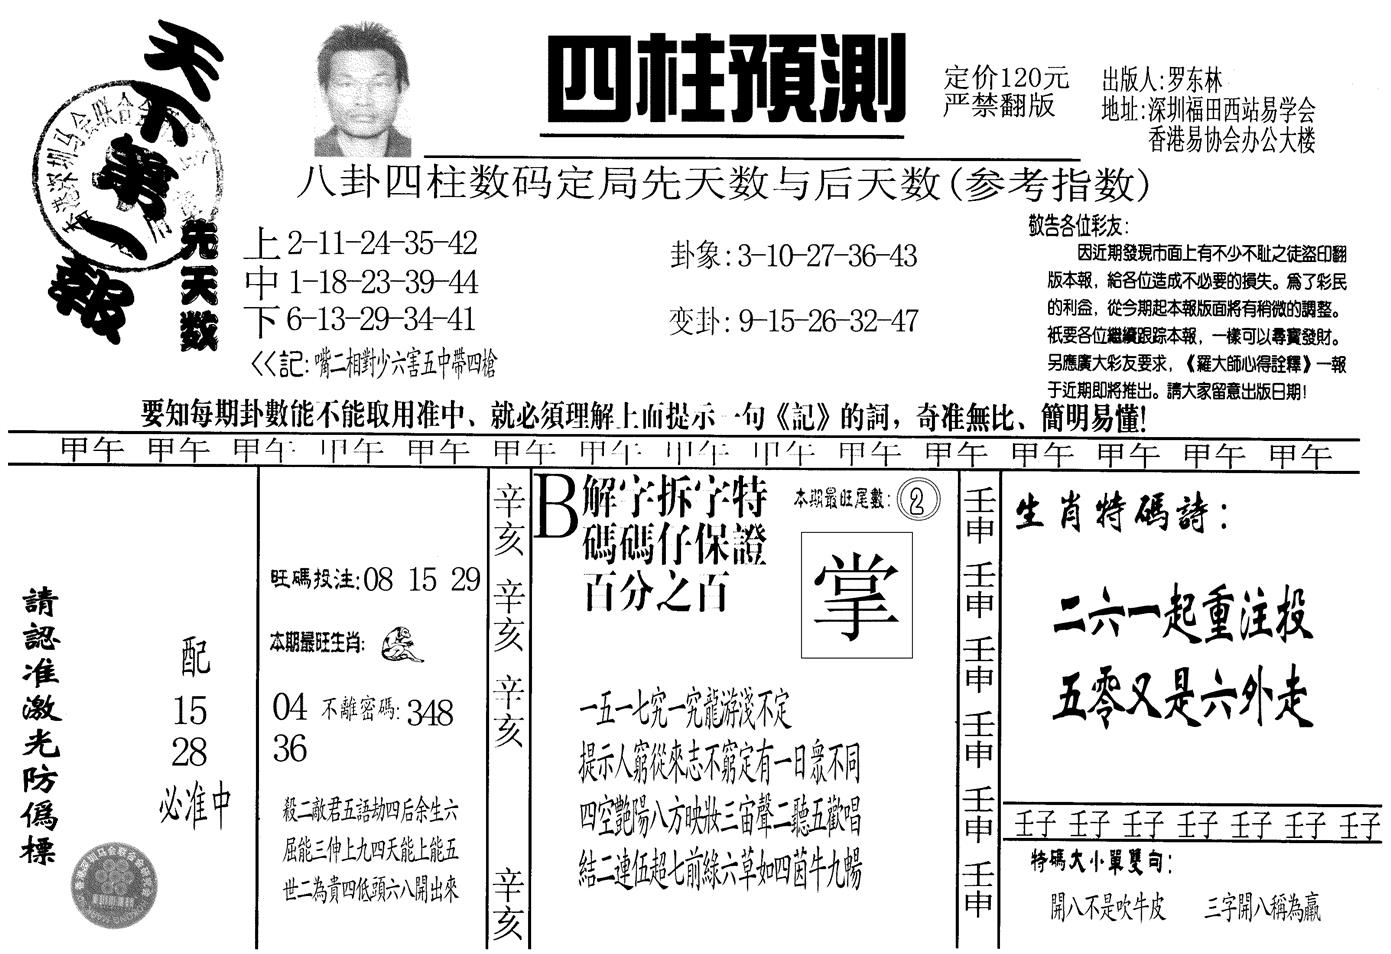 天下第一報
四柱預測
定价120元
严禁翻版
出版人:罗东林
地址:深圳福田西站易学会
香港易协会办公大楼
八卦四柱数码定局先天数与后天数(参考指数)
先天数
上 2-11-24-35-42
中 1-18-23-39-44
下 6-13-29-34-41
<<記:嘴二相對少六害五中帶四槍
卦象:3-10-27-36-43
变卦:9-15-26-32-47
敬告各位彩友:
因近期發現市面上有不少不耻之徒盜印翻
版本報，給各位造成不必要的損失。爲了彩民
的利益，從今期起本報版面將有稍微的調整。
衹要各位繼續跟踪本報，一樣可以尋寶發財。
另應廣大彩友要求，《羅大師心得詮釋》一報
于近期即將推出。請大家留意出版日期!
要知每期卦數能不能取用准中、就必須理解上面提示一句《記》的詞，奇准無比、簡明易懂!
甲午 甲午 甲午 甲午 甲午 甲午 甲午 甲午 甲午 甲午 甲午 甲午 甲午 甲午 甲午
請認准激光防僞標
配
15
28
必准中
旺碼投注:08 15 29
本期最旺生肖:
04 不離密碼:348
36
殺二敵君五語劫四后余生六
屈能三伸上九四天能上能五
世二為貴四低頭六八開出來
辛亥 辛亥 辛亥 辛亥
B解字拆字特
碼碼仔保證
百分之百
本期最旺尾數:②
掌
一五一七究一究龍游淺不定
提示人窮從來志不窮定有一日眾不同
四空艷陽八方映妝三宙聲二聽五歡唱
結二連伍超七前綠六草如四茵牛九暢
壬申 壬申 壬申 壬申 壬申 壬申
生肖特碼詩:
二六一起重注投
五零又是六外走
壬子 壬子 壬子 壬子 壬子 壬子 壬子
特碼大小單雙句:
開八不是吹牛皮 三字開八稱為贏